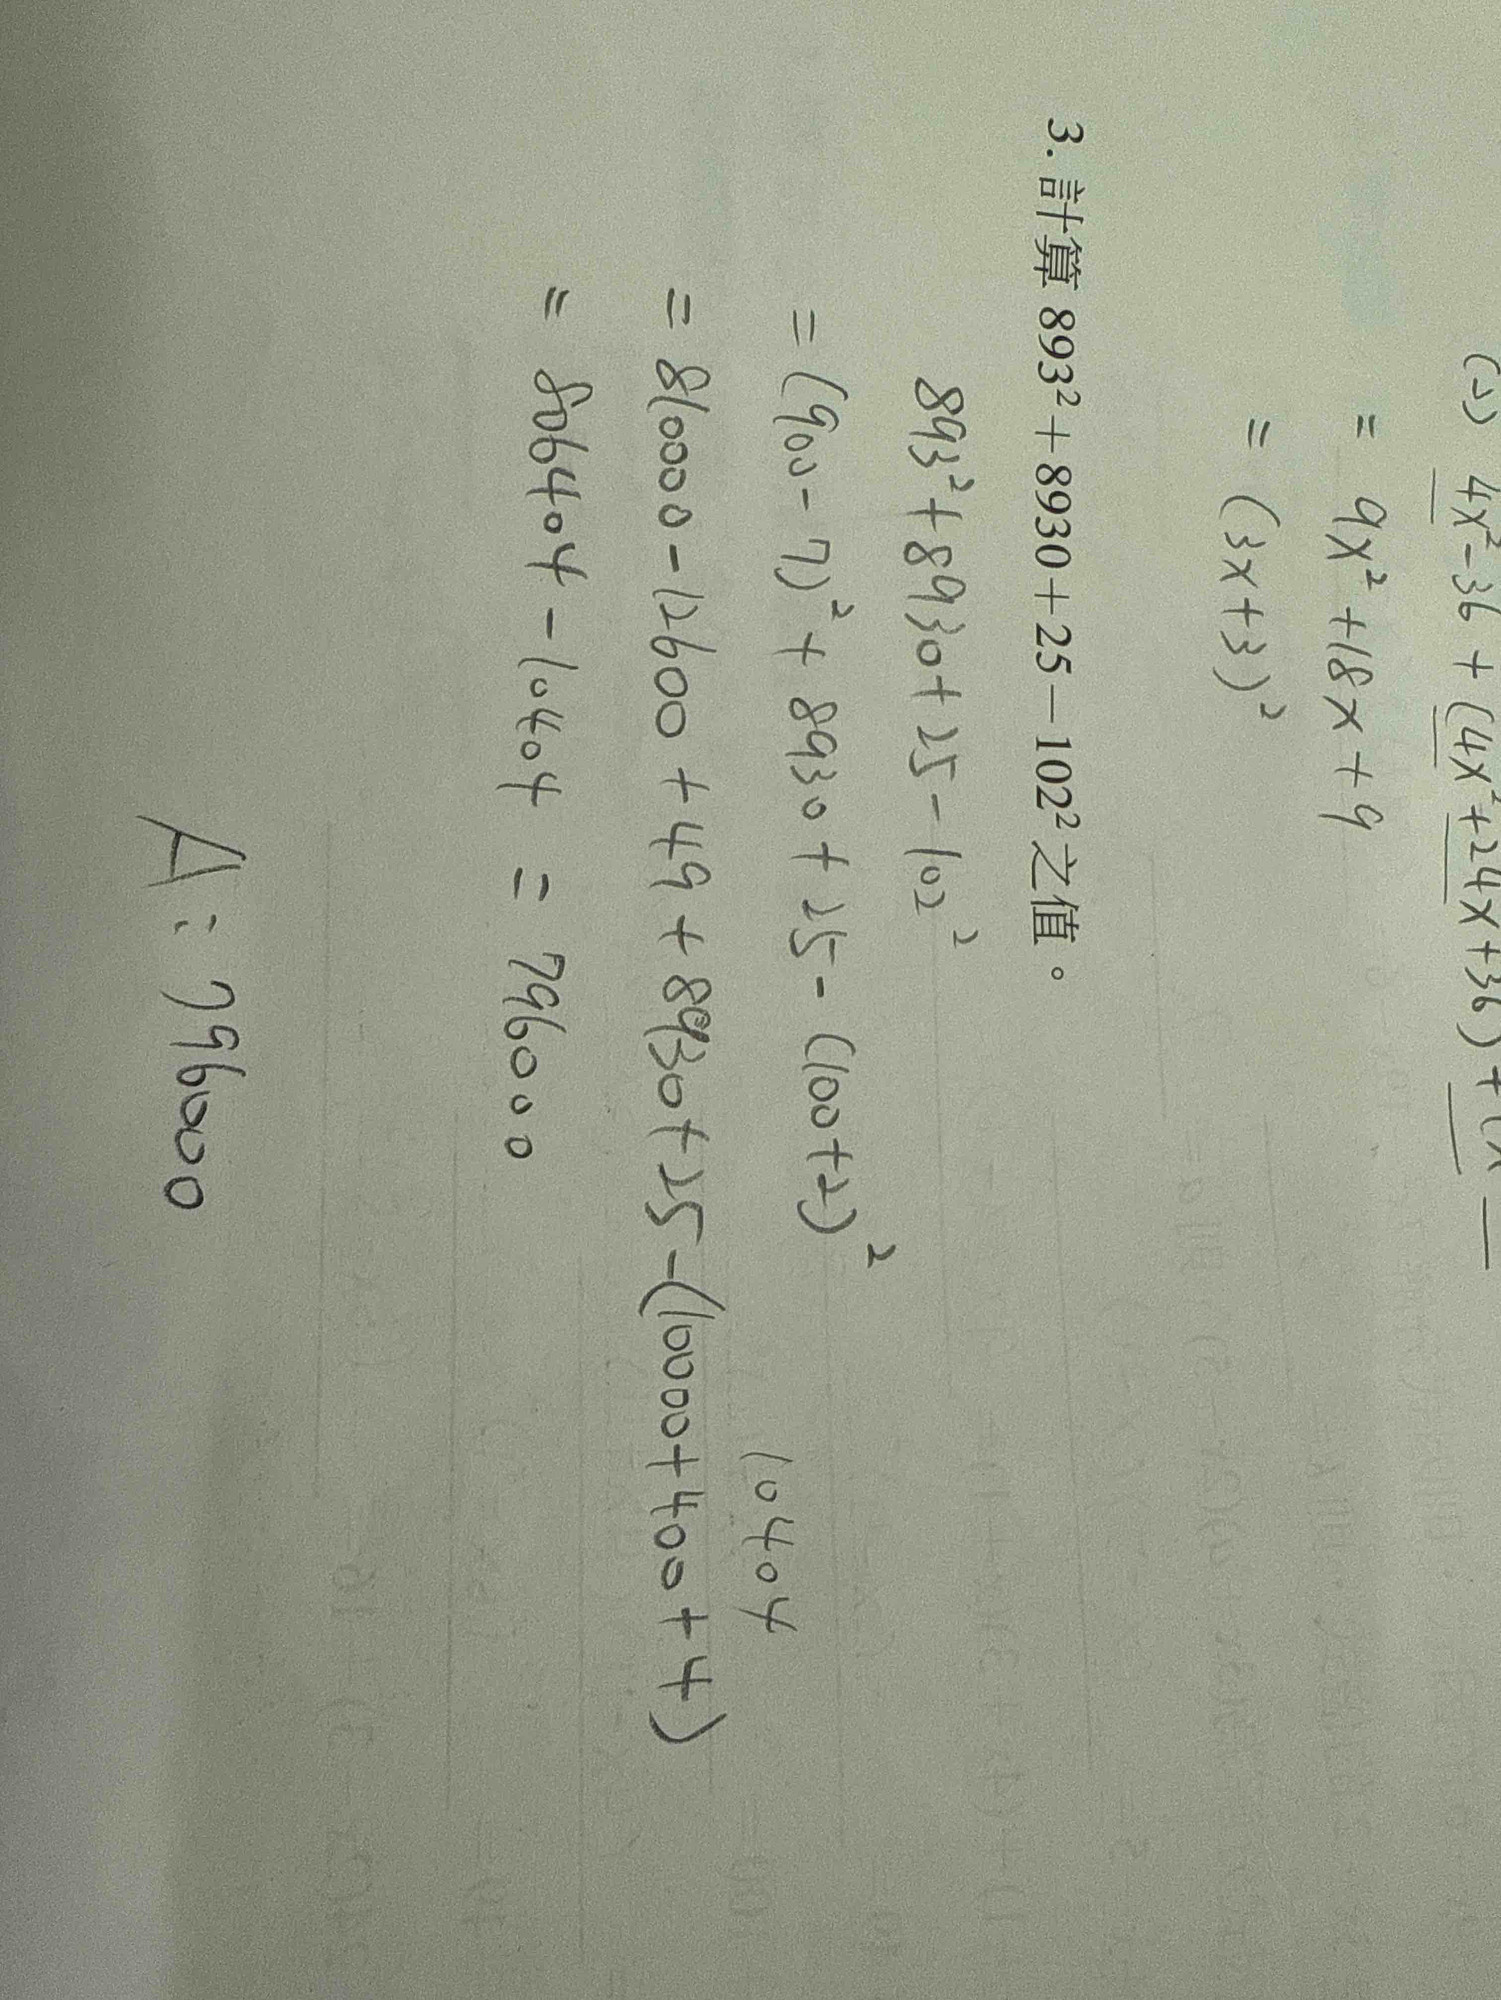 (2) 4x²-36 + (4x²+24x+36) + (x
= 9x² +18x + 9
= (3x+3)²
3. 計算 893²+8930+25-102² 之值。
893²+8930+25-102²
= (900-7)² + 8930 + 25 - (100+2)²
10404
= 810000-12600 + 49 + 8930+25-(10000+400+4)
= 806404-10404 = 796000
A: 796000